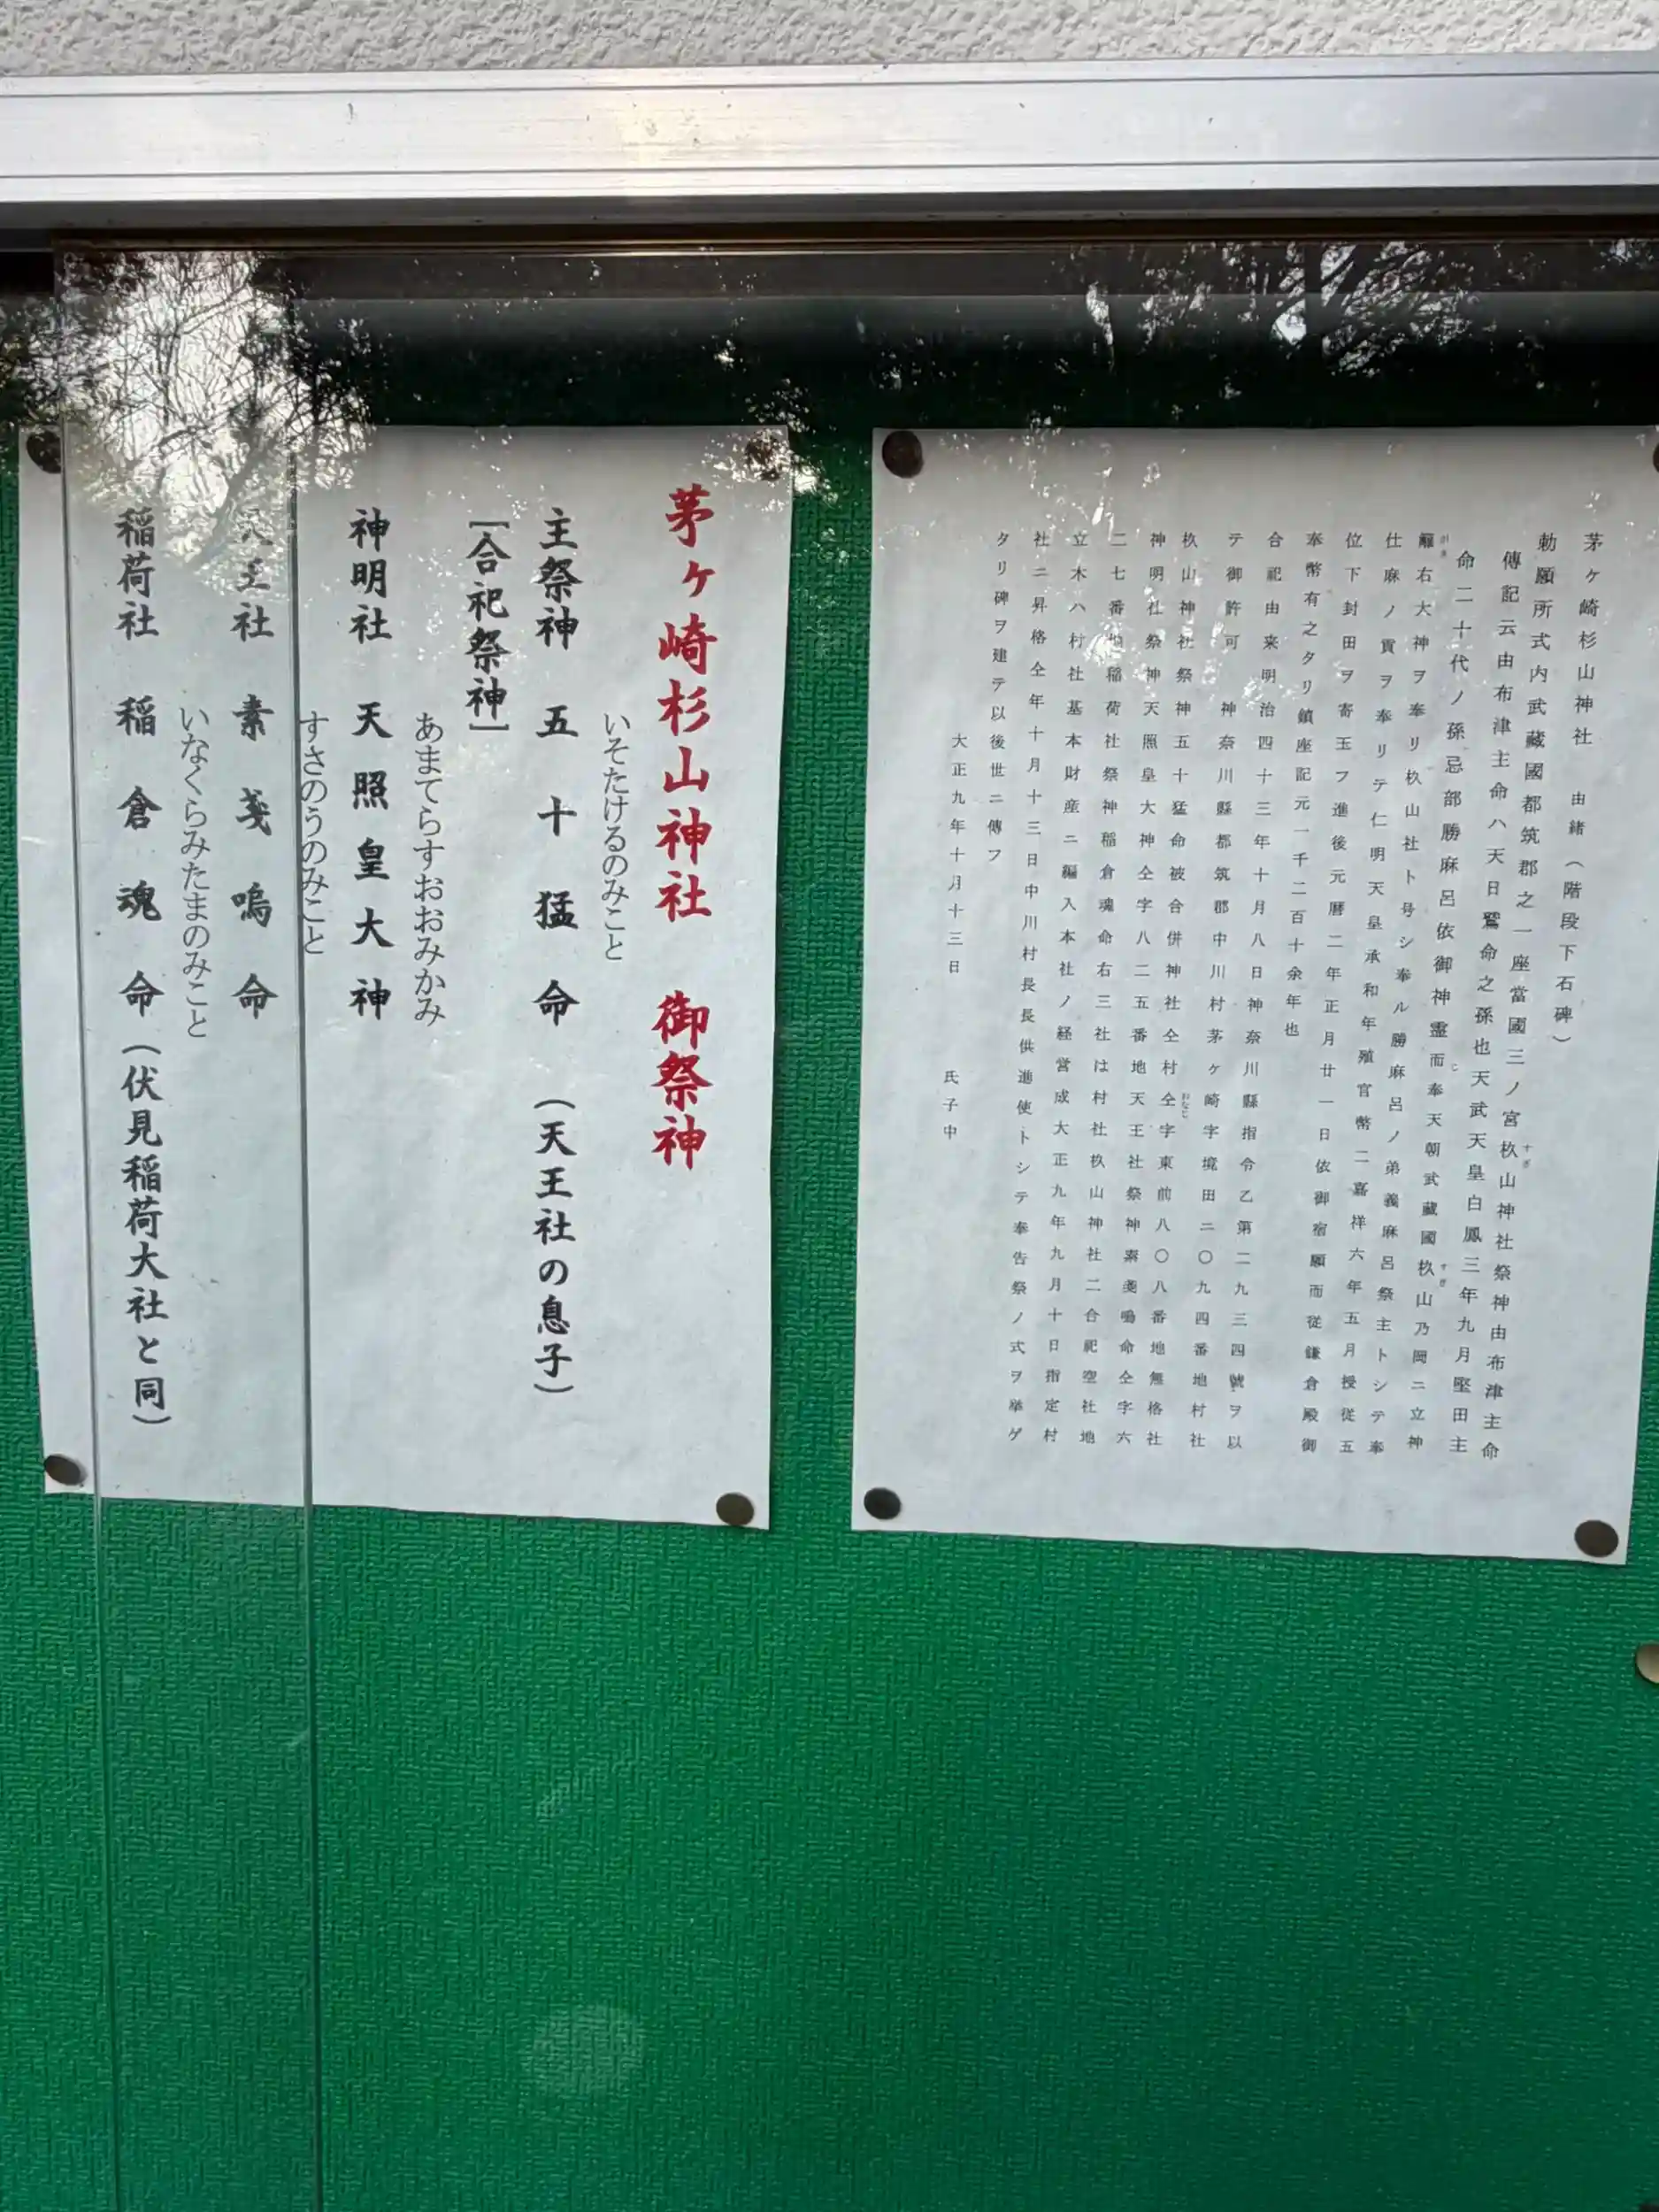 茅ヶ崎杉山神社 由緒（階段下石碑）
勅願所式内武蔵國都筑郡之一座當國三ノ宮杦山神社祭神由布津主命
傳記云由布津主命ハ天日鷲命之孫也天武天皇白鳳三年九月堅田主
命二十代ノ孫忌部勝麻呂依御神霊而奉天朝武蔵國杦山乃岡ニ立神
籬右大神ヲ奉リ杦山社ト号シ奉ル勝麻呂ノ弟義麻呂祭主トシテ奉
仕麻ノ貢ヲ奉リテ仁明天皇承和年殖官幣二嘉祥六年五月授従五
位下封田ヲ寄玉フ進後元暦二年正月廿一日依御宿願而従鎌倉殿御
奉幣有之タリ鎮座記元一千二百十余年也
合祀由来明治四十三年十月八日神奈川縣指令乙第二九三四號ヲ以
テ御許可 神奈川縣都筑郡中川村茅ヶ崎字境田二〇九四番地村社
杦山神社祭神五十猛命被合併神社仝村仝字東前八〇八番地無格社
神明社祭神天照皇大神仝字八二五番地天王社祭神素戔嗚命仝字六
二七番地稲荷社祭神稲倉魂命右三社は村社杦山神社二合祀空社地
立木ハ村社基本財産ニ編入本社ノ経営成大正九年九月十日指定村
社ニ昇格仝年十月十三日中川村長長供進使トシテ奉告祭ノ式ヲ挙ゲ
タリ碑ヲ建テ以後世ニ傳フ
大正九年十月十三日 氏子中
茅ヶ崎杉山神社 御祭神
いそたけるのみこと
主祭神 五十猛命（天王社の息子）
［合祀祭神］
あまてらすおおみかみ
神明社 天照皇大神
すさのうのみこと
天王社 素戔嗚命
いなくらみたまのみこと
稲荷社 稲倉魂命（伏見稲荷大社と同）